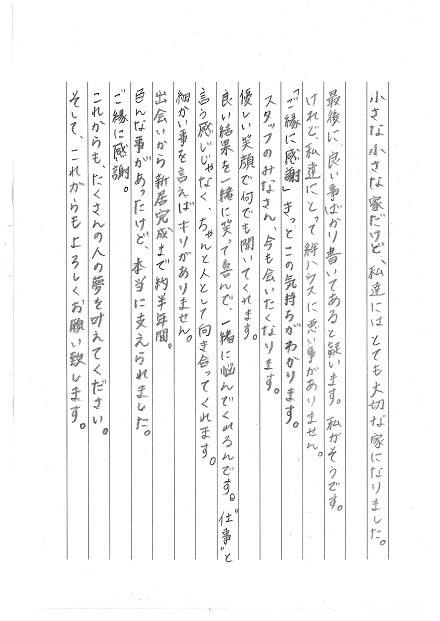 小さな小さな家だけど、私達にはとても大切な家になりました。
最後に、良い事ばかり書いてあると疑います。私がそうです。
けれど私達にとって絆ハウスに悪い事がありません。
「ご縁に感謝」きっとこの気持ちがわかります。
スタッフのみなさん、今も会いたくなります。
優しい笑顔で何でも聞いてくれます。
良い結果を一緒に笑って喜んで、一緒に悩んでくれるんです。“仕事”と
言う感じじゃなく、ちゃんと人として向き合ってくれます。
細かい事を言えばキリがありません。
出会いから新居完成まで約半年間。
色んな事があったけど、本当に支えられました。
ご縁に感謝。
これからも、たくさんの人の夢を叶えてください。
そして、これからもよろしくお願い致します。